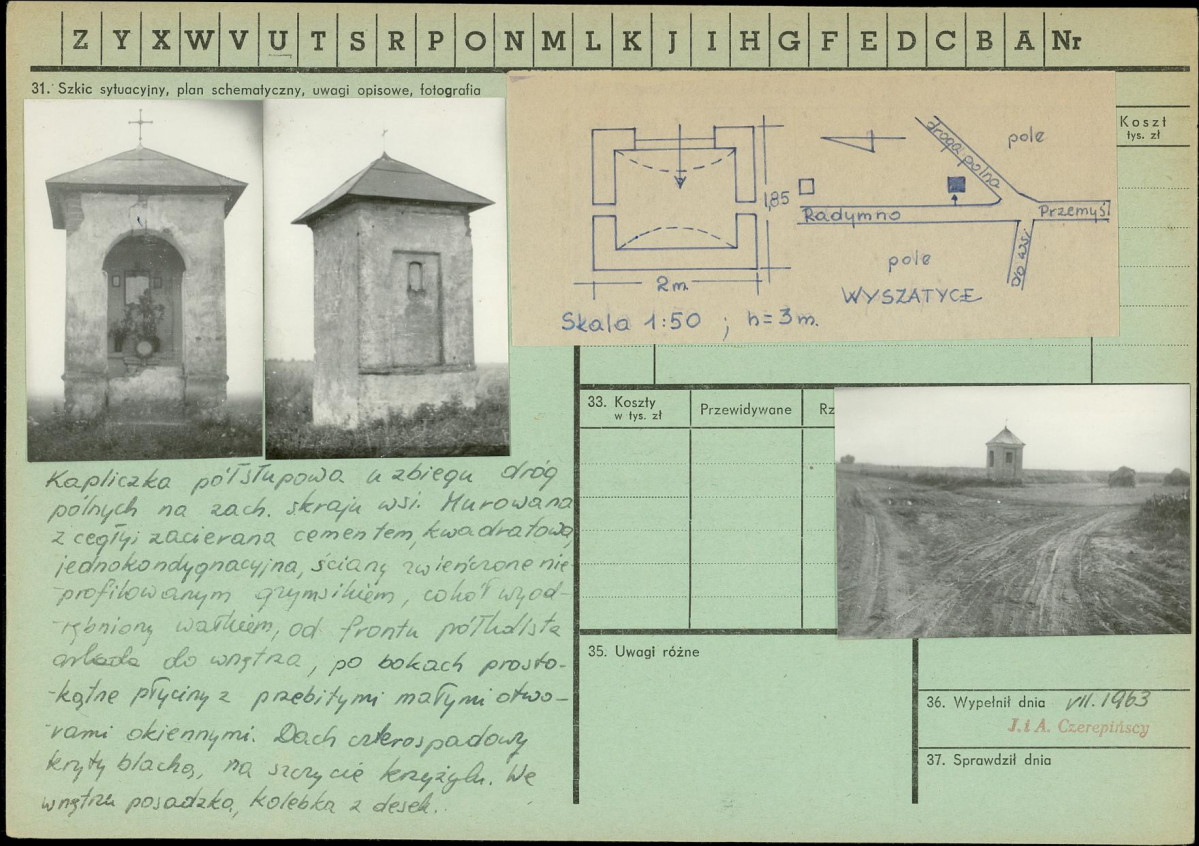 Z Y X W V U T S R P O N M L K J I H G F E D C B A Nr
31. Szkic sytuacyjny, plan schematyczny, uwagi opisowe, fotografia
Koszt
tys. zł
droga polna
pole
1,85
Radymno
Przemyśl
do wsi
pole
2 m.
WYSZATYCE
Skala 1:50 ; h = 3 m.
33. Koszty
w tys. zł
Przewidywane
Rz
Kapliczka półsłupowa u zbiegu dróg
polnych na zach. skraju wsi. Murowana
z cegły i zacierana cementem, kwadratowa,
jednokondygnacyjna, ściany zwieńczone nie
profilowanym gzymsikiem, cokół wyod-
-rębniony wałkiem, od frontu półkolista
arkada do wnętrza, po bokach prosto-
-kątne płyciny z przebitymi małymi otwo-
-rami okiennymi. Dach czterospadowy
kryty blachą, na szczycie krzyżyk. We
wnętrzu posadzka, kolebka z desek.
35. Uwagi różne
36. Wypełnił dnia VII. 1963
J. i A. Czerepińscy
37. Sprawdził dnia